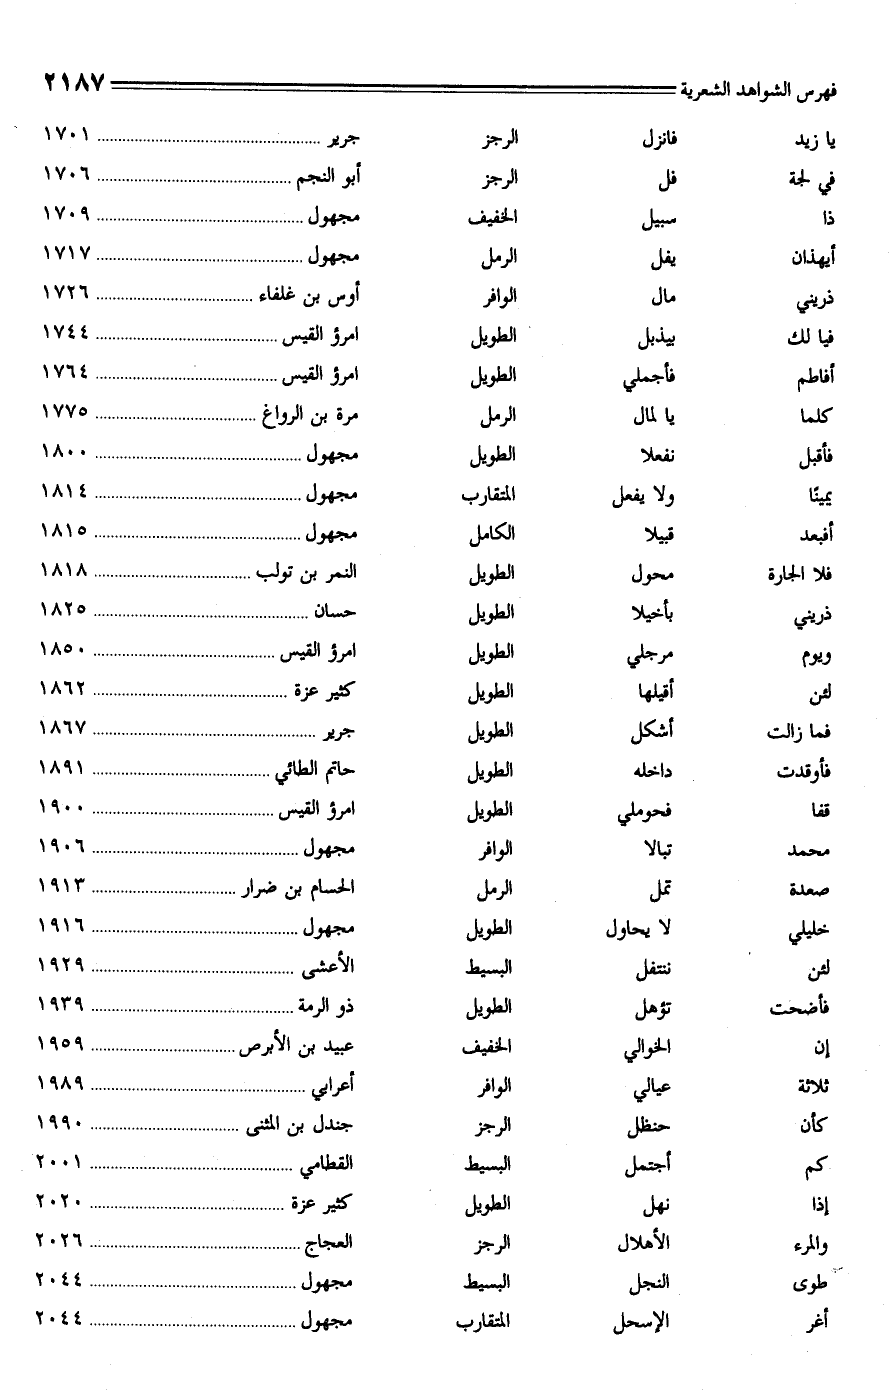 فهرس الشواهد الشعرية ٢١٨٧
يا زيد فانزل الرجز جرير ١٧٠١
في لجة فل الرجز أبو النجم ١٧٠٦
ذا سبيل الخفيف مجهول ١٧٠٩
أيهذان يفل الرمل مجهول ١٧١٧
ذريني مال الوافر أوس بن غلفاء ١٧٢٦
فيا لك بيذبل الطويل امرؤ القيس ١٧٤٤
أفاطم فأجملي الطويل امرؤ القيس ١٧٦٤
كلما يا لمال الرمل مرة بن الرواغ ١٧٧٥
فأقبل نفعلا الطويل مجهول ١٨٠٠
يمينًا ولا يفعل المتقارب مجهول ١٨١٤
أفبعد قبيلا الكامل مجهول ١٨١٥
فلا الجارة محول الطويل النمر بن تولب ١٨١٨
ذريني بأخيلا الطويل حسان ١٨٢٥
ويوم مرجلي الطويل امرؤ القيس ١٨٥٠
لئن أقيلها الطويل كثير عزة ١٨٦٢
فما زالت أشكل الطويل جرير ١٨٦٧
فأوقدت داخله الطويل حاتم الطائي ١٨٩١
قفا فحوملي الطويل امرؤ القيس ١٩٠٠
محمد تبالا الوافر مجهول ١٩٠٦
صعدة تمل الرمل الحسام بن ضرار ١٩١٣
خليلي لا يحاول الطويل مجهول ١٩١٦
لئن ننتفل البسيط الأعشى ١٩٢٩
فأضحت تؤهل الطويل ذو الرمة ١٩٣٩
إن الخوالي الخفيف عبيد بن الأبرص ١٩٥٩
ثلاثة عيالي الوافر أعرابي ١٩٨٩
كأن حنظل الرجز جندل بن المثنى ١٩٩٠
كم أجتمل البسيط القطامي ٢٠٠١
إذا نهل الطويل كثير عزة ٢٠٢٠
والمرء الأهلال الرجز العجاج ٢٠٢٦
طوى النجل البسيط مجهول ٢٠٤٤
أغر الإسحل المتقارب مجهول ٢٠٤٤